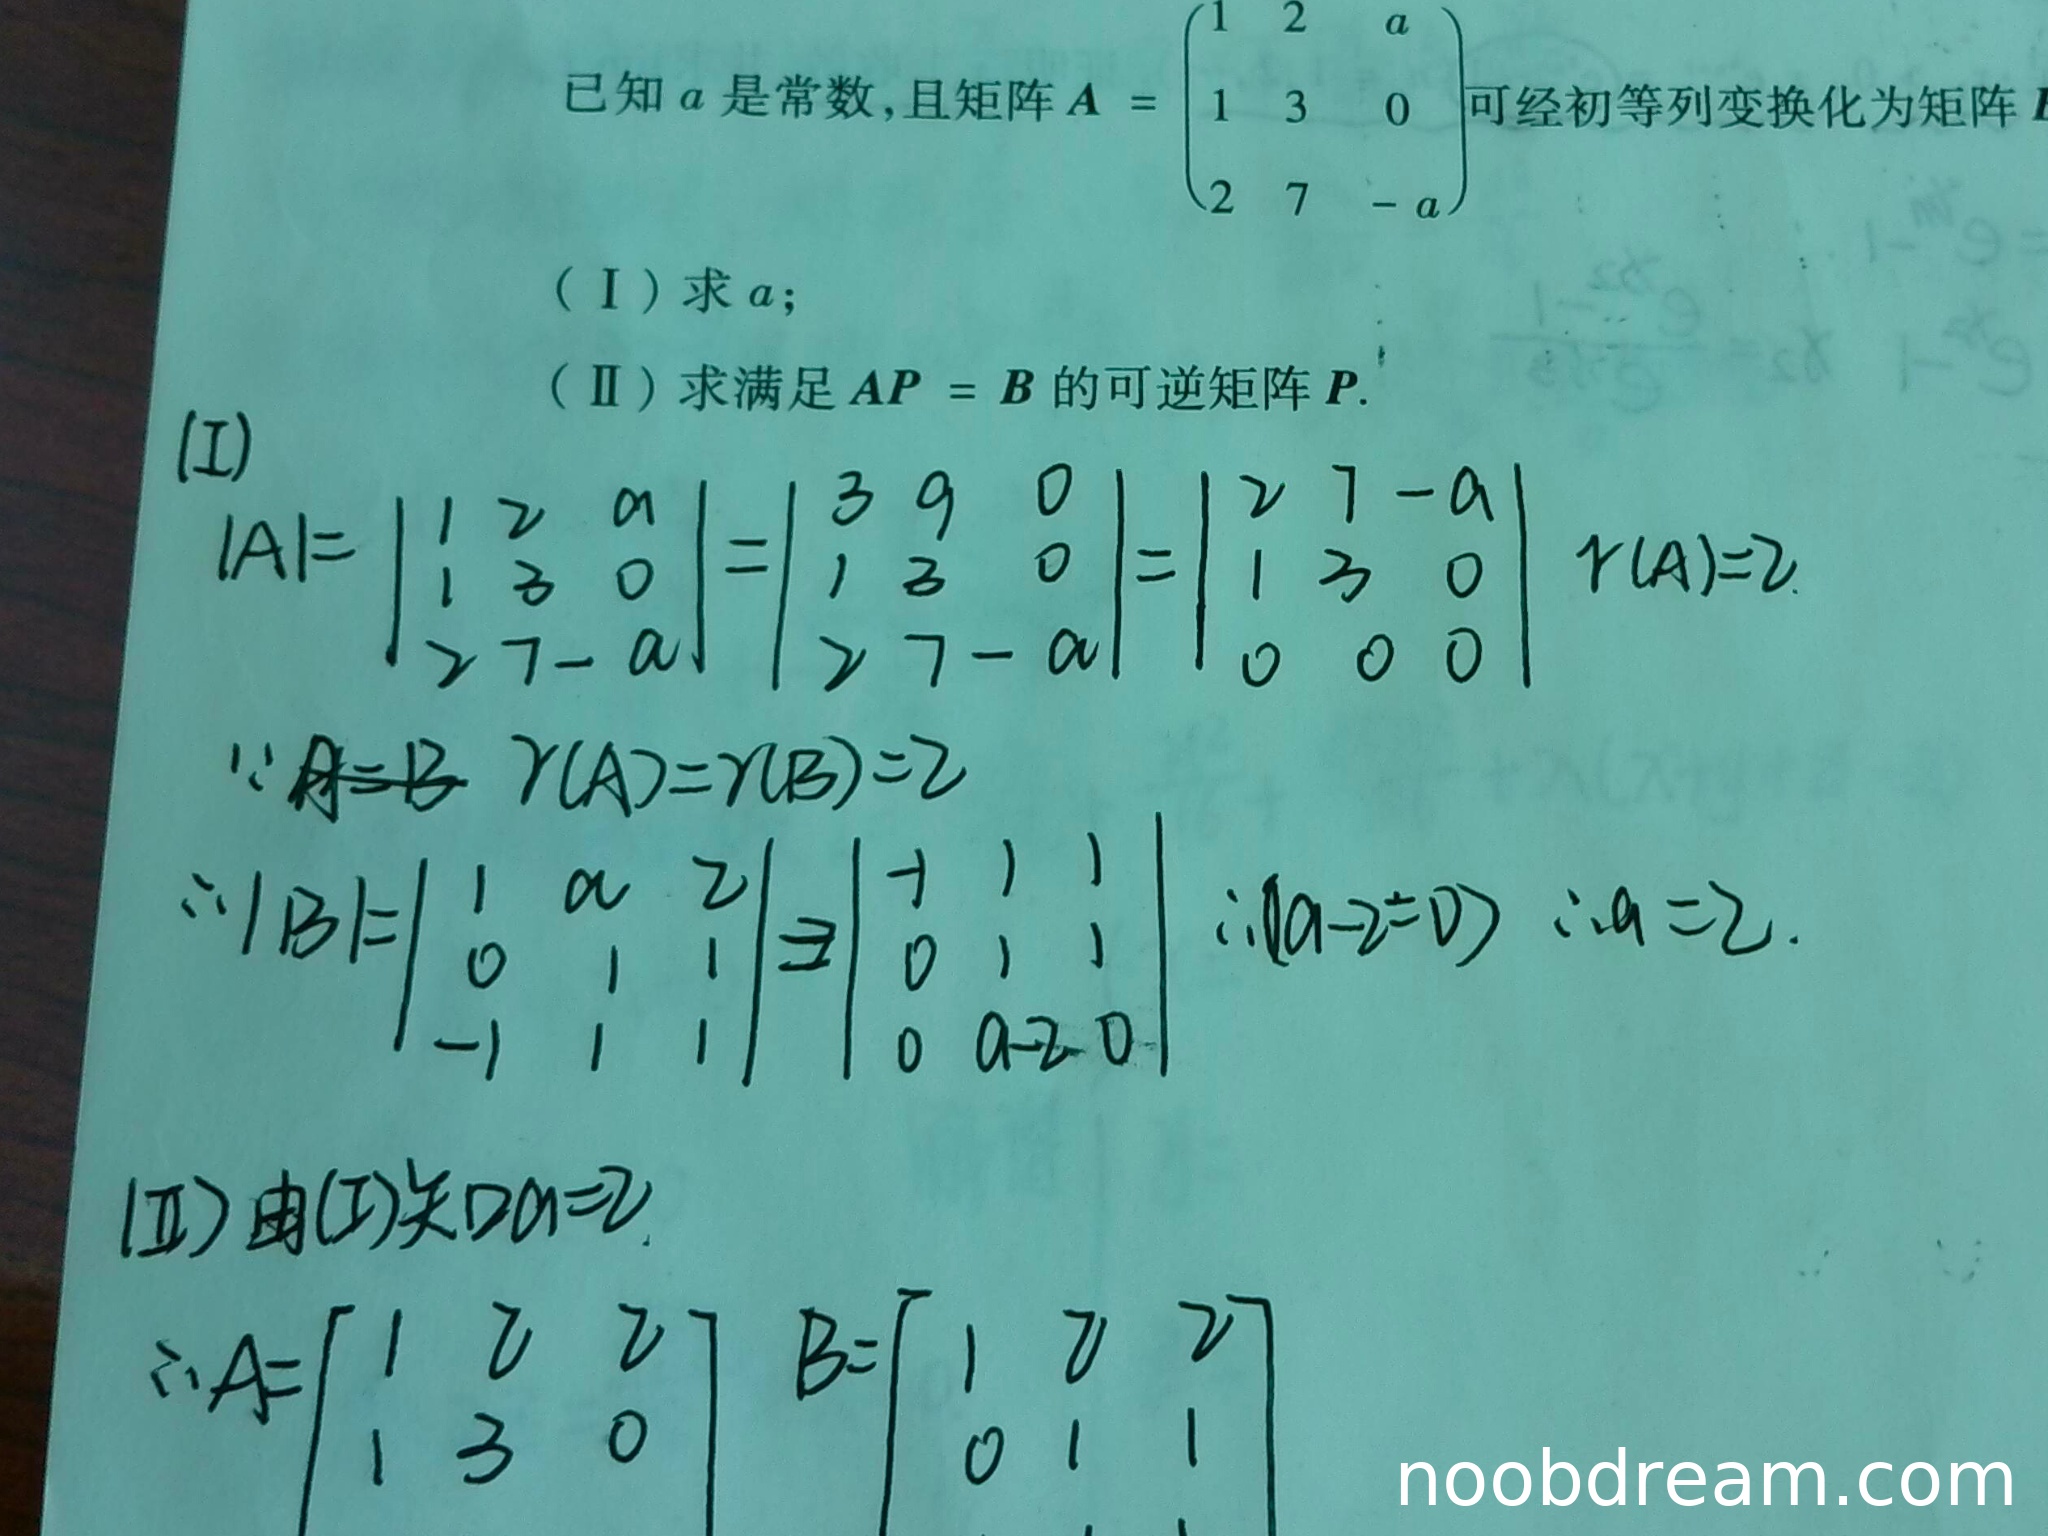 已知 a 是常数,且矩阵 A = (1 2 a
1 3 0
2 7 -a) 可经初等列变换化为矩阵
(Ⅰ) 求 a;
(Ⅱ) 求满足 AP = B 的可逆矩阵 P.
(Ⅰ)
|A|= |1 2 a
1 3 0
2 7 -a| = |3 9 0
1 3 0
2 7 -a| = |2 7 -a
1 3 0
0 0 0| r(A)=2.
∵ A=B r(A)=r(B)=2
∴|B|= |1 a 2
0 1 1
-1 1 1| = |-1 1 1
0 1 1
0 a-2 0| ∴(a-2=0) ∴a=2.
(Ⅱ) 由(Ⅰ)知a=2.
∴A= [1 2 2
1 3 0
B= [1 2 2]
0 1 1
noobdream.com